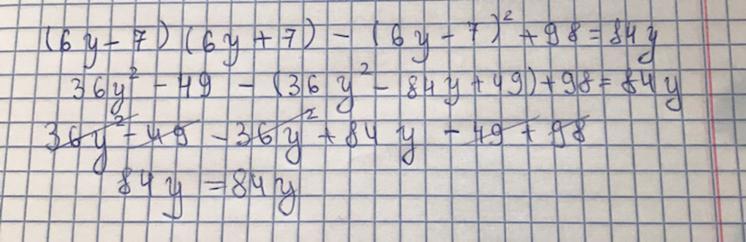 (6y-7)(6y+7)-(6y-7)²+98=84y
36y²-49-(36y²-84y+49)+98=84y
36y²-49-36y²+84y-49+98
84y=84y